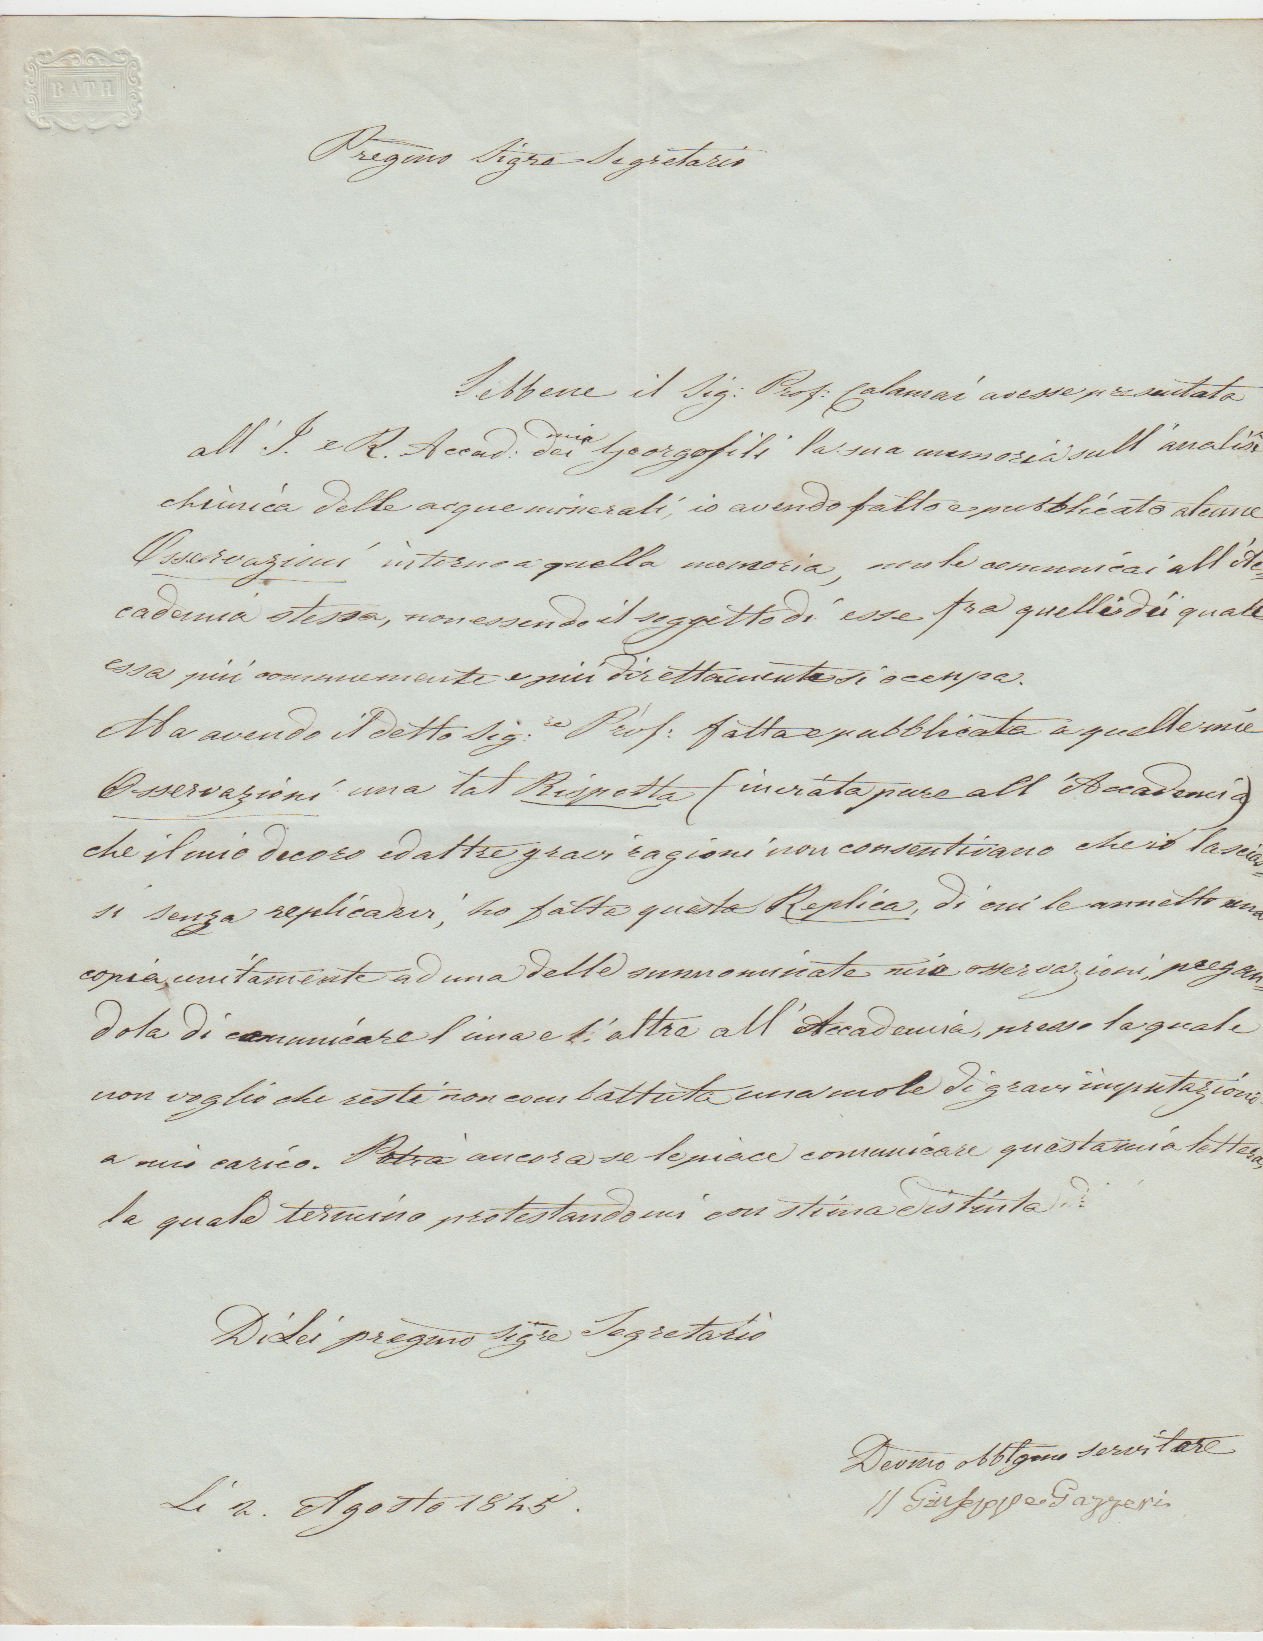 BATH
Pregmo Sigre Segretario
Sebbene il Sig: Prof: Calamai avesse presentata
all' I. e R. Accad:mia dei Georgofili la sua memoria sull' analisi
chimica delle acque minerali, io avendo fatto e pubblicato alcune
Osservazioni intorno a quella memoria, non le comunicai all' Ac-
cademia stessa, non essendo il soggetto di esse fra quelli di quale
essa più comunemente e più direttamente si occupa.
Ma avendo il detto Sig:re Prof: fatta e pubblicata a quelle mie
Osservazioni una tal Risposta (inviata pure all' Accademia)
che il mio decoro ed altre gravi ragioni non consentivano che io lascias-
si senza replicarvi, ho fatta questa Replica, di cui le annetto una
copia unitamente ad una delle summominate mie osservazioni, pregan-
dola di comunicare l'una e l'altre all' Accademia, presso la quale
non voglio che resti non combattuta una mole di gravi imputazioni
a mio carico. Potrà ancora se le piace comunicare questa mia lettera,
la quale termino protestandomi con stima distinta
Di Lei pregmo Sigre Segretario
Devmo obblgmo servitore
Giuseppe Gazzeri
Li 2. Agosto 1845.